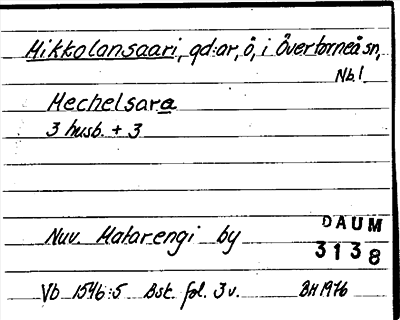 Mikkolansaari, gd:ar, ö, i Övertorneå sn,
Nb.l.
Mechelsara
3 husb. + 3
Nuv. Matarengi by
DAUM
3138
Vb 1546:5 Bst. fol. 3 v. BH 1976